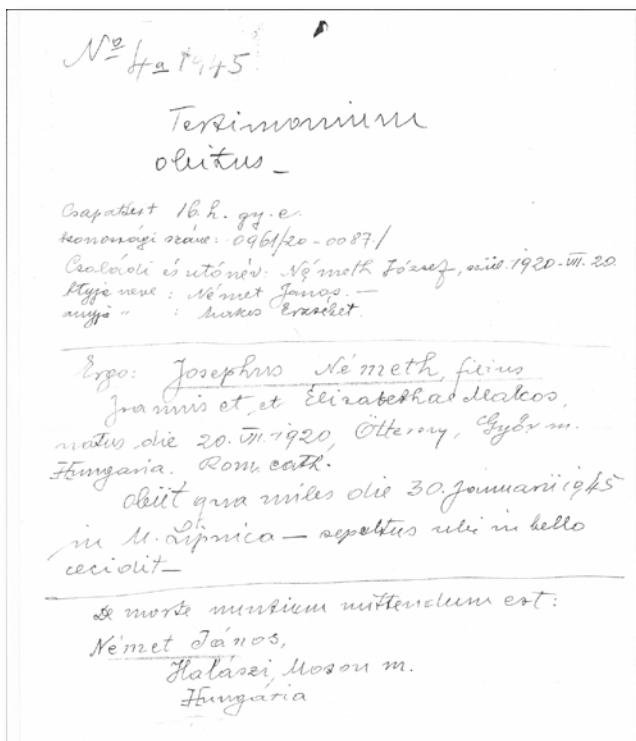 No 4a 1945
Testimonium
obitus_
Csapattest 16. h. gy. e.
Azonossági száma: 0961/20-0087./
Családi és utónév: Németh József, szül. 1920-VII. 20.
Atyja neve: Német János. —
anyja " : Makos Erzsébet.
Ergo: Josephus Németh, filius
Joannis et, et Elizabethae Makos,
natus die 20. VII. 1920, Győr m.
Hungaria. Rom. cath.
obiit qua miles die 30. Januarii 1945
in M. Lipnica — sepultus ubi in bello
cecidit_
De morte nuntium mittendum est:
Német János,
Halászi, Moson m.
Hungária